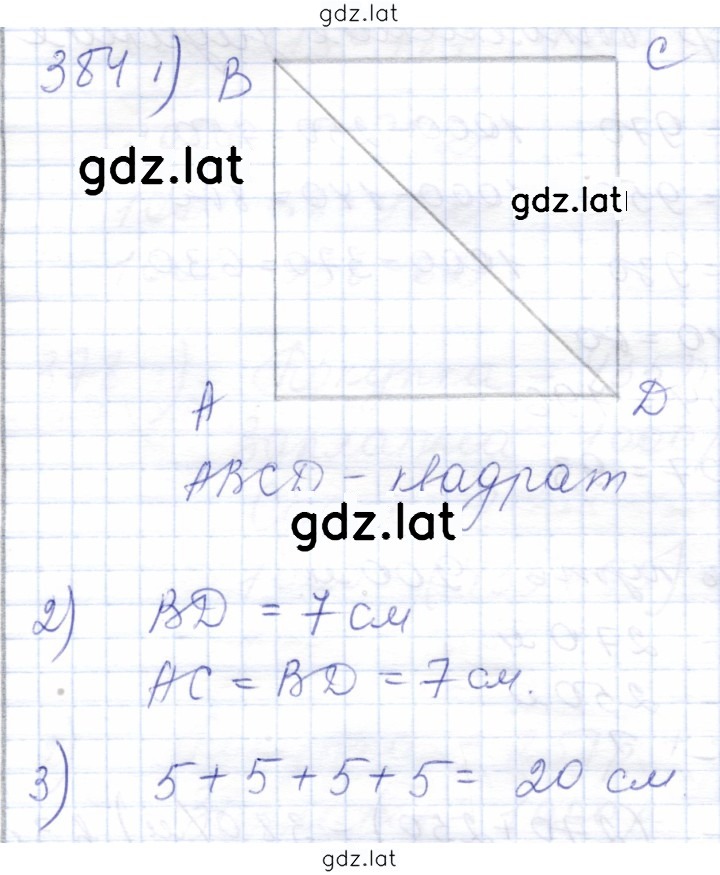 gdz.lat
384 1) B C
gdz.lat
gdz.lat
A D
ABCD - квадрат
gdz.lat
2) BD = 7 см
AC = BD = 7 см.
3) 5 + 5 + 5 + 5 = 20 см
gdz.lat